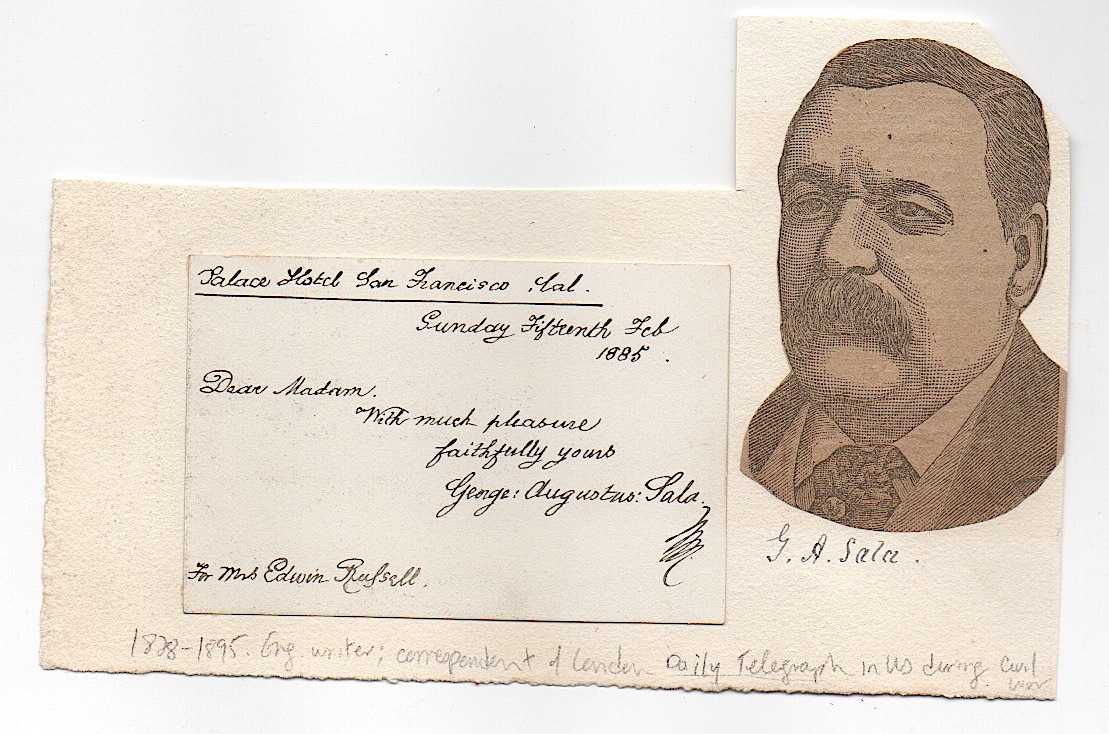 Palace Hotel San Francisco, Cal.
Sunday Fifteenth Feb
1885.
Dear Madam.
With much pleasure
faithfully yours
George: Augustus: Sala.
For Mrs Edwin Russell.
G. A. Sala.
1828-1895. Eng. writer; correspondent of London Daily Telegraph in US during Civil
war